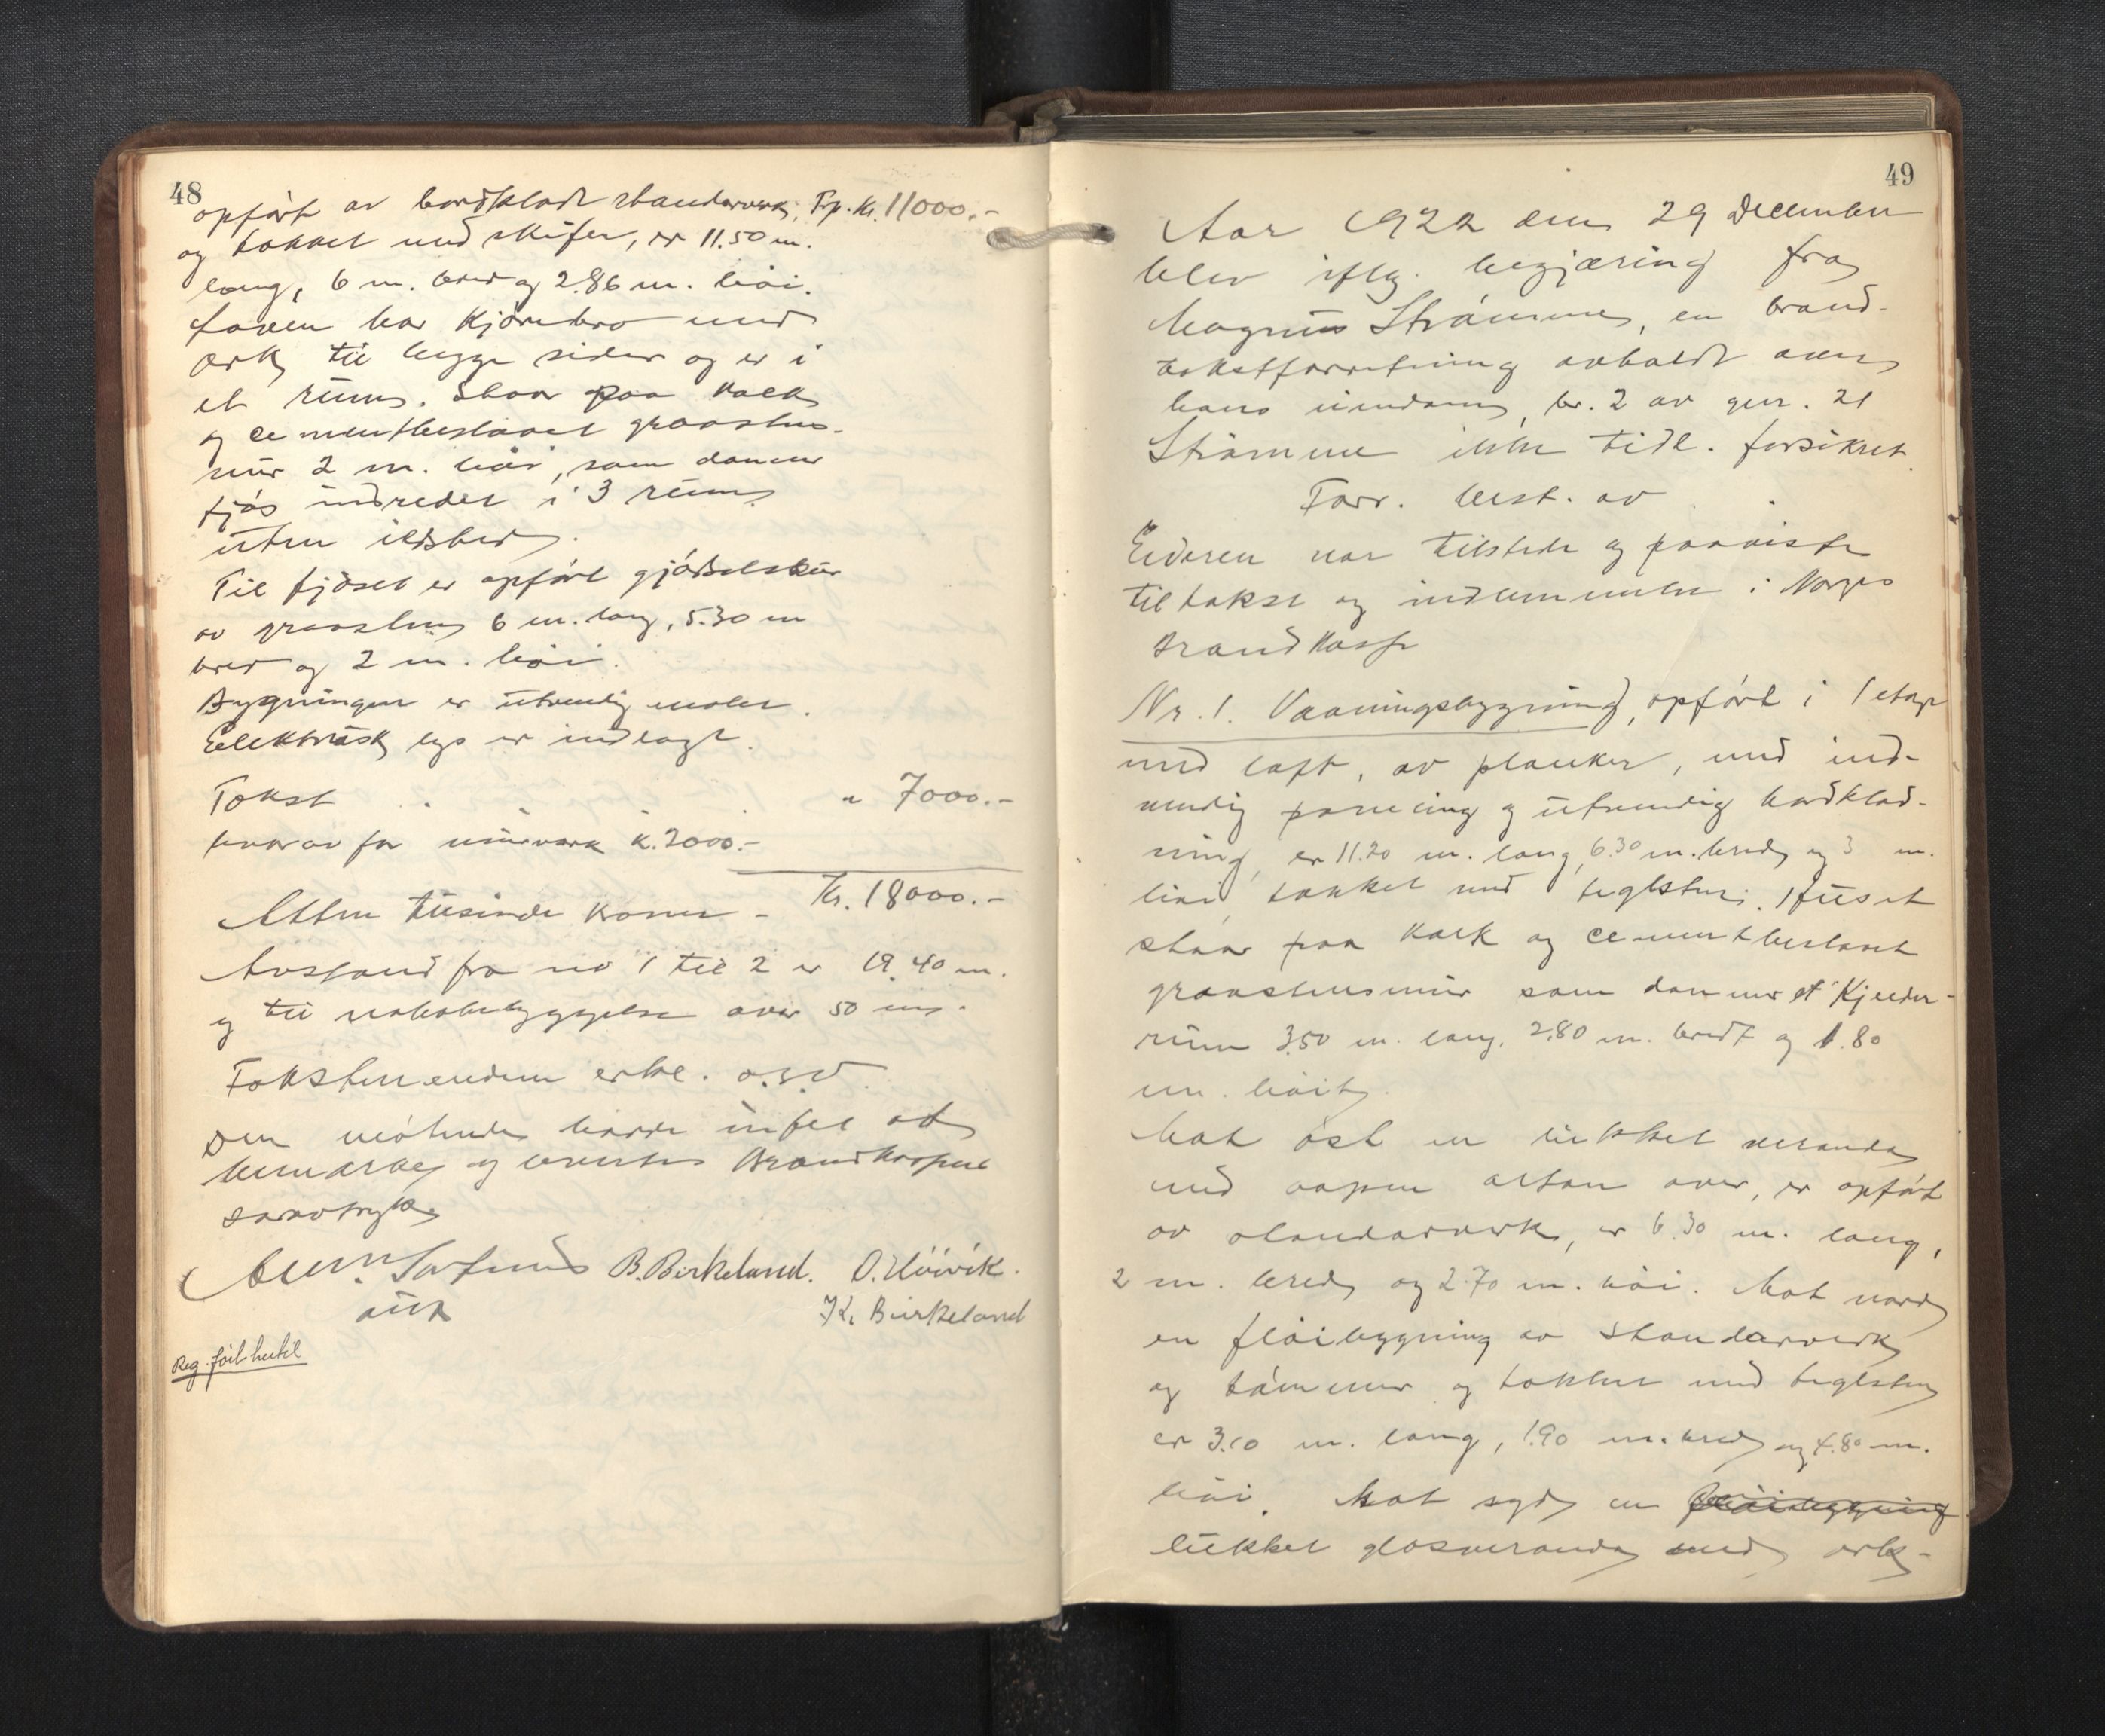 48
opført av bordklædt standerverk, Trp. Kr. 11000.-
og tækket med skifer, er 11.50 m.
lang, 6 m. bred og 2.86 m. høi.
Laven har Kjørebro med
ark til begge sider og er i
et rum. Staar paa kalk
og cementbeslaaet graastens-
mur 2 m. høi, som danner
fjøs indredet i 3 rum
uten ildsted.
Til fjøset er opført gjødselskur
av graasten 6 m. lang, 5.30 m
bred og 2 m. høi.
Bygningen er utvendig malet.
Elektrisk lys er indlagt.
Takst " 7000.-
hvorav for murverk k. 2000.-
Kr. 18000.-
Atten tusinde kroner -
Avstand fra no 1 til 2 er 19.40 m.
og til nabobebyggelse over 50 m.
Takstmændene erkl. o.s.v.
Den møtende hadde intet at
bemerke og leverte Brandkassens
særavtryk
B. Birkeland. O. Höivik.
K. Birkeland
Reg. ført hertil
49
Aar 1922 den 29 December
blev iflg. begjæring fra
Magnus Strømme, en brand-
takstforretning avholdt over
hans eiendom, br. 2 av gnr. 21
Strømme ikke tidl. forsikret.
Forr. best. av
Eieren var tilstede og paaviste
til takst og indlemmelse i Norges
Brandkasse
Nr. 1. Vaaningsbygning, opført i 1 etage
med loft, av planker, med ind-
vendig paneling og utvendig bordklæd-
ning, er 11.20 m. lang, 6.30 m. bred og 3 m.
høi, tækket med teglsten. Huset
staar paa kalk og cementbeslaaet
graastensmur som danner et Kjelder-
rum 3.50 m. lang, 2.80 m. bredt og 1.80
m. høit.
Mot øst en lukket veranda
med aapen altan over, er opført
av standerverk, er 6.30 m. lang,
2 m. bred og 2.70 m. høi. Mot nord
en fløibygning av standerverk
og tømmer og tækket med teglsten
er 3.10 m. lang, 1.90 m. bred og 4.80 m.
høi. Mot syd en fløibygning
lukket glasveranda med ark-